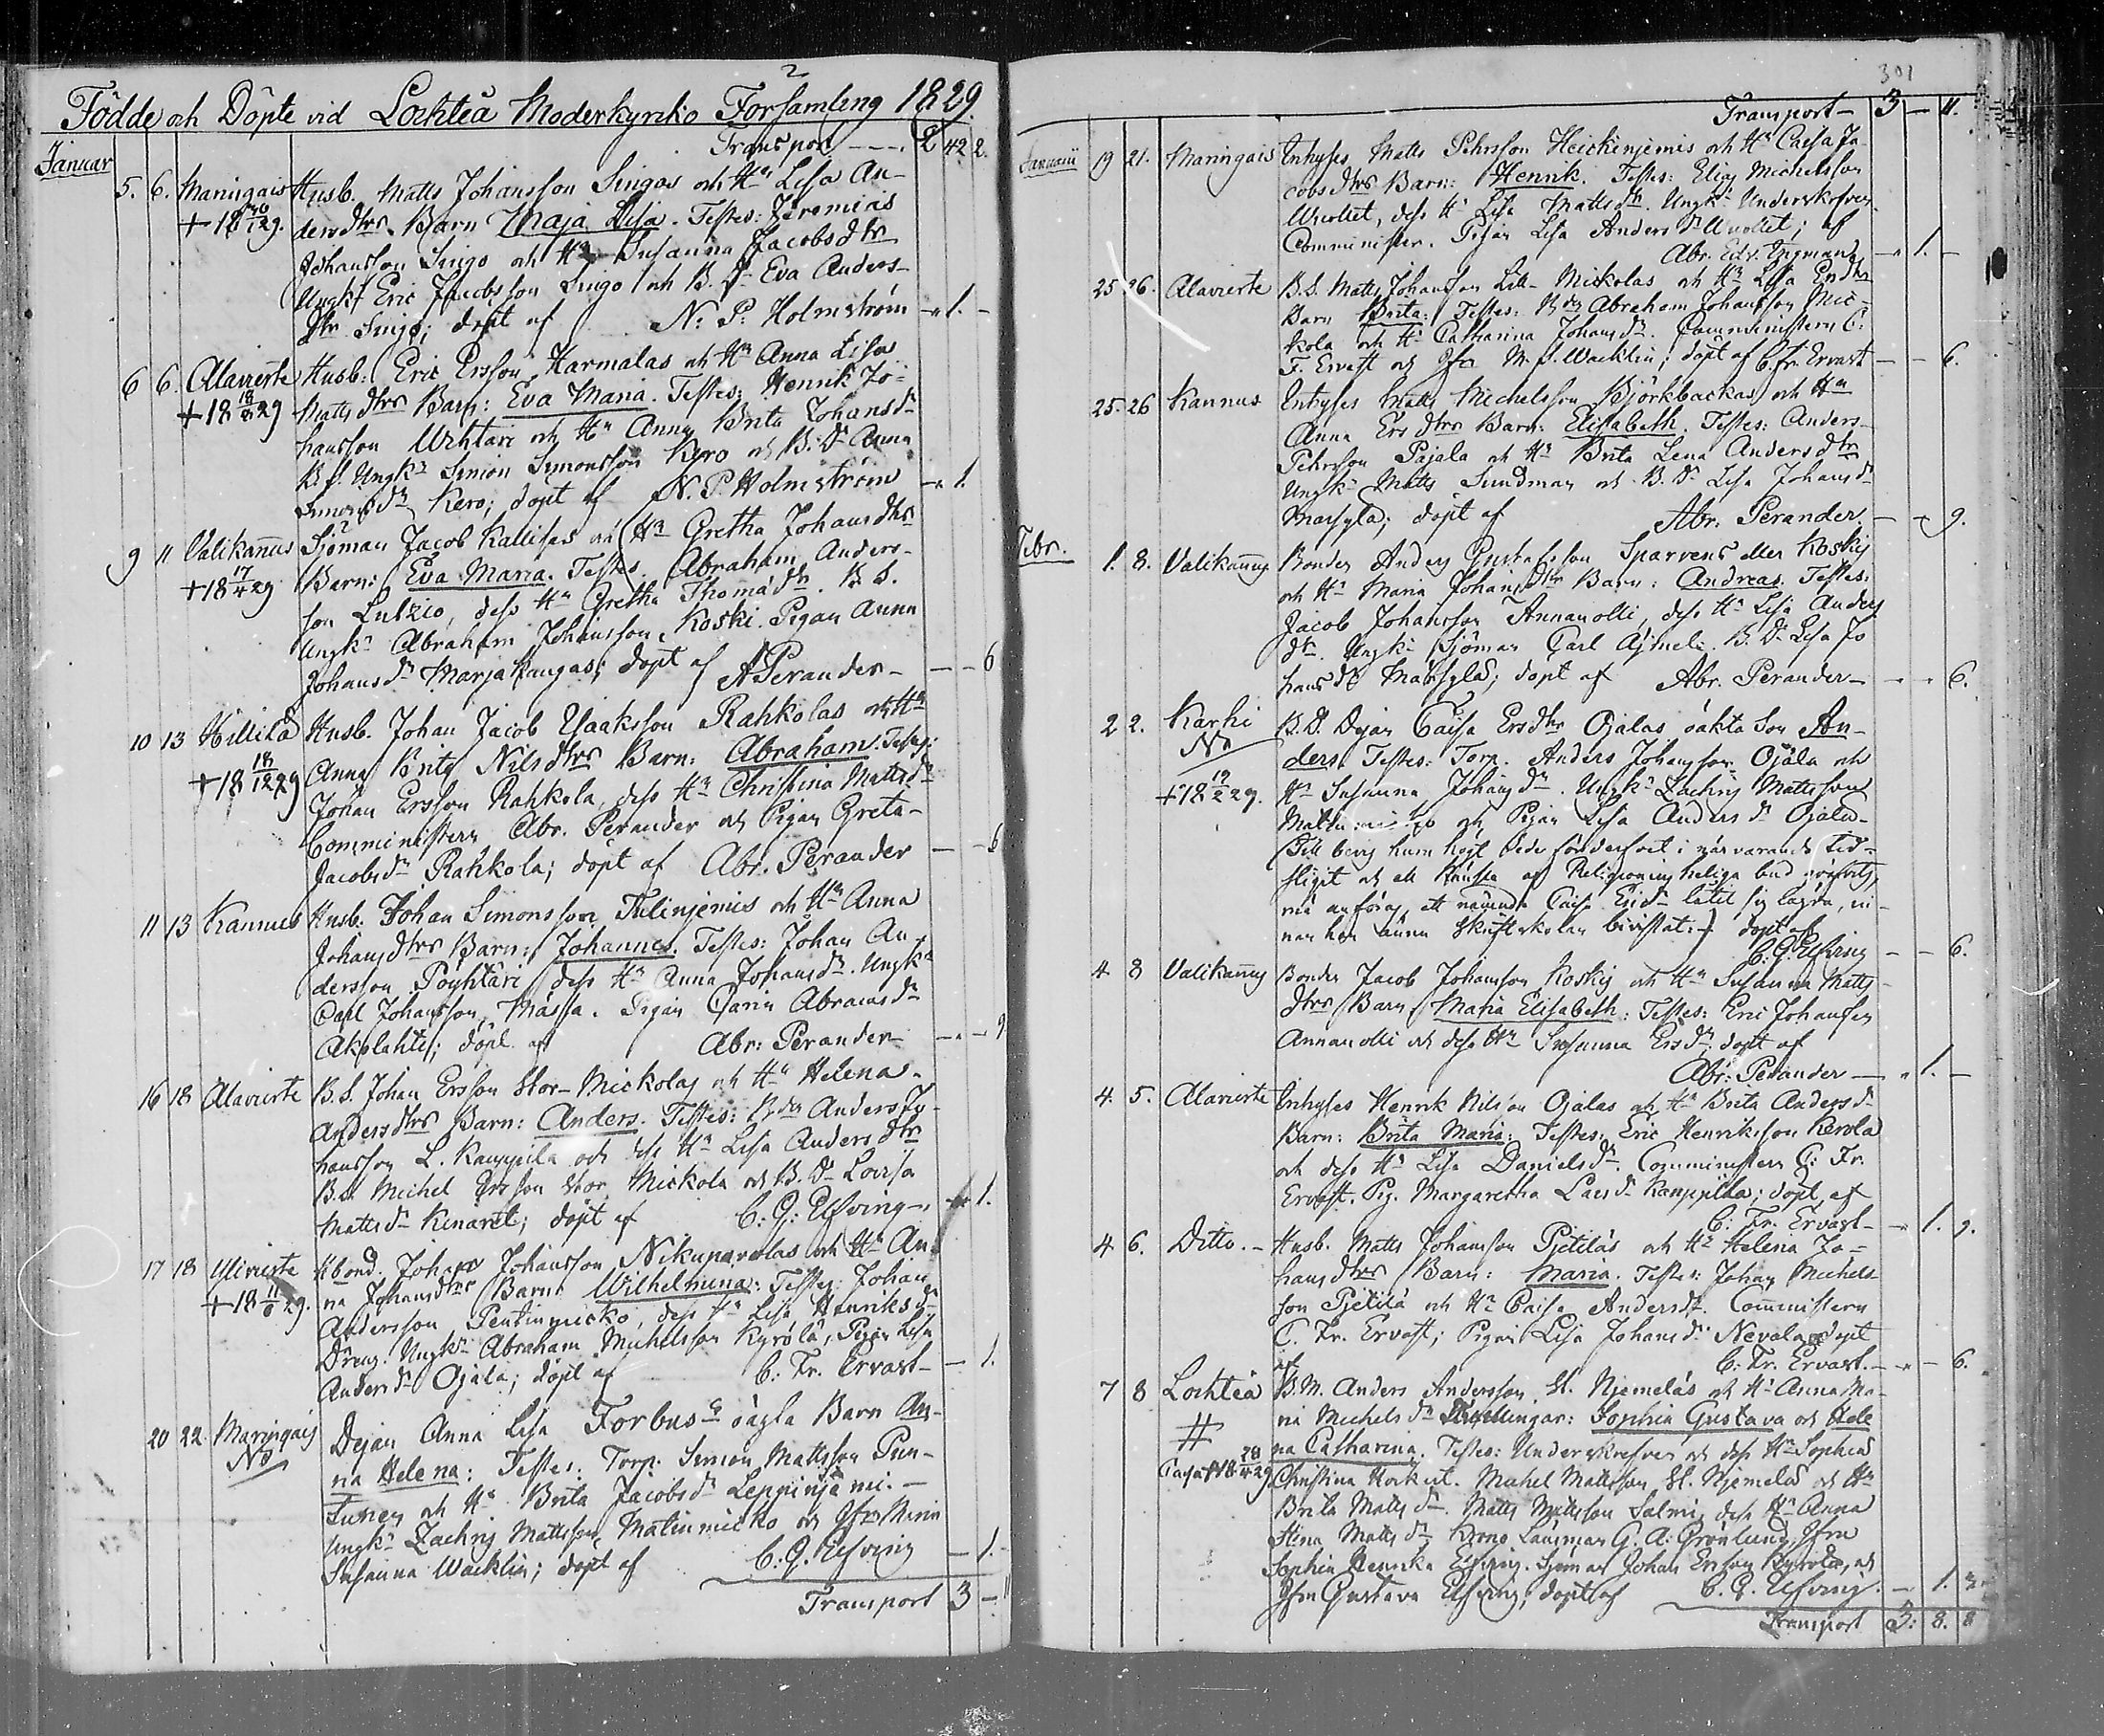 2
Födde och Döpte vid Lochteå Moderkyrko Församling 1829.
Transport 2 42 2.
Januar
5. 6. Maringais Husb. Matts Johansson Singos och Hu Lisa An-
+ 18 30/1 29. dersdtrs Barn Maja Lisa. Testes: Jeremias
Johansson Singo och Hu Susanna Jacobsdtr
Ungk. Eric Jacobsson Singo och B. Dr Eva Anders-
dtr Singo; döpt af N: P: Holmström - 1. -
6 6. Alavierte Husb: Eric Ersson Karmalas och Hu Anna Lisa
+ 18 29 Mattsdtrs Barn: Eva Maria. Testes: Henrik Jo-
hansson Wihtari och Hu Anna Brita Johansdr
B.S. Ungkn Simon Simonsson Kero och B: Dr Anna
Simonsdr Kero; döpt af N. P. Holmström - 1.
9 11 Välikannus Sjöman Jacob Kallises och Hu Gretha Johansdtrs
+ 18 17/4 29 Barn: Eva Maria. Testes. Abraham Anders-
son Lutzio, dess Hu Gretha Thomædr. B. S.
Ungkn Abraham Johansson Koski. Pigan Anna
Johansdr Marjakangas; döpt af A Perander - - 6
10 13 Hillilä Husb. Johan Jacob Isaaksson Rahkolas och Hu
+ 18 18/12 29 Anna Brita Nilsdtrs Barn: Abraham. Testes:
Johan Ersson Rahkola, dess Hu Christina Mattsdr
Comministern Abr. Perander och Pigan Greta
Jacobsdr Rahkola; döpt af Abr. Perander - - 6
11 13 Kannus Husb. Johan Simonsson Tulinjemis och Hu Anna
Johansdtrs Barn: Johannes. Testes: Johan An-
dersson Pöyhtäri dess Hu Anna Johansdr. Ungkn
Carl Johansson Mässa. Pigan Carin Abramsdr
Akolahti; döpt af Abr: Perander - - 9
16 18 Alavierte B. S. Johan Ersson Stor-Mickolas och Hu Helena
Andersdtrs Barn: Anders. Testes: Bden Anders Jo-
hansson L. Kauppila och dess Hu Lisa Andersdtr
B.S. Michel Ersson Stor Mickola och B. Dr Lovisa
Mattsdr Kinaret; döpt af C: G: Elfving - 1.
17 18 Ylivierte Johan Johansson Nikuparolas och Hu An-
+ 18 11/6 29. na Johansdtrs Barn: Wilhelmina: Testes: Johan
Andersson Pentinmicko, dess Hu Lisa Henriksdr
Dreng. Ungkn Abraham Michelsson Kyrölä, Pigan Lisa
Andersdr Ojala; döpt af C: Fr. Ervast - 1.
20 22. Maringais Dejan Anna Lisa Forbuss oägta Barn An-
No na Helena: Testes: Torp. Simon Mattsson Pun-
tunen och Hu Brita Jacobsdr Leppinjemi. -
Ungkn Zachris Mattsson Matinmicko och Jfrn Maria
Susanna Wacklin; döpt af C: G. Elfving - 1.
Transport 3 - 11
301
Transport - 3 - 11.
Januarii 19 21. Maringais Inhyses Matts Pehrsson Heickinjemis och Hu Caisa Ja-
cobsdtrs Barn: Henrik. Testes: Elias Michelsson
dess Hu Lisa Mattsdr. Ungkn Underskrefven
Comminister. Pigan Lisa Andersdr; af
Abr. Edv. Engman - 1. -
25 26. Alavierte B. S. Matts Johansson Lill-Mickolas och Hu Lisa Ersdtrs
Barn Brita: Testes: Bden Abraham Johansson Mic-
kola och Hu Catharina Johansdr. Comministern C:
F. Ervast och Jfrn M. S. Wacklin; döpt af C. Fr. Ervast - - 6.
25. 26 Kannus Inhyses Matts Michelsson Björkbackas och Hu
Anna Ersdtrs Barn: Elisabeth. Testes: Anders
Pehrsson Pajala och Hu Brita Lena Andersdtr
Ungkn Matts Sundman och B. Dr Lisa Johansdr
Marsyla; döpt af Abr. Perander. - - 9.
Febr. 1. 8. Välikannus Bonden Anders Gustafsson Sparvens eller Koskis
och Hu Maria Johansdtrs Barn: Andreas. Testes:
Jacob Johansson Annanolli, dess Hu Lisa Anders
dtr. Ungkn Sjöman Carl Ajmeli. B. Dr Lisa Jo
hansdr Marsyla; döpt af Abr. Perander - - 6.
2 2. Karhi B. D. Dejan Caisa Ersdtr Ojalas oäkta Son An-
No ders. Testes: Torp. Anders Johansson Ojala och
+ 18 12/2 29. Hu Susanna Johansdr. Ungkn Zachris Mattsson
Matinmicko och Pigan Lisa Andersdr Ojala -
(Till bevis huru högt sedeförderfvet i närvarande tid-
stigit och all känsla af Religionens heliga bud
må anföras, att nämnda Caisa Ersdr låtit sig lägra, in-
nan hon ännu Skriftskolan bevistat.-) döpt af
C. G. Elfving - - 6.
4 8 Välikannus Bonden Jacob Johansson Koskis och Hu Susanna Matts
dtrs Barn Maria Elisabeth: Testes: Eric Johansson
Annanolli och dess Hu Susanna Ersdr, döpt af
Abr: Perander - 1. -
4. 5. Alavierte Inhyses Henrik Nilsson Ojalas och Hu Brita Andersdr
Barn: Brita Maria: Testes: Eric Henriksson Kerola
och dess Hu Lisa Danielsdr. Comministern C: Fr.
Ervast. Pig. Margaretha Larsdr Kauppila; döpt af
C: Fr. Ervast - 1. 9.
4 6. Ditto. - Husb. Matts Johansson Pjetiläs och Hu Helena Jo-
hansdtrs Barn: Maria. Testes: Johan Michels-
son Pjetilä och Hu Caisa Andersdr. Comministern
C. Fr. Ervast; Pigan Lisa Johansdr Nevala döpt
af C: Fr. Ervast. - - 6.
7 8 Lochteå B. M. Anders Andersson St. Njemeläs och Hu Anna Ma-
# ria Michelsdr Tvillingar: Sophia Gustava och Hele
na Catharina. Testes: Underskrefven och dess Hu Sophia
+ 18 28/4 29 Christina Horkert. Michel Mattsson St. Njemelä och Hu
Brita Mattsdr. Matts Mattsson Salmi, dess Hu Anna
Stina Mattsdr Länsman G. A. Grönlund, Jfrn
Sophia Henrika Elfving. Sjöman Johan Ersson Kyrölä, och
Jfrn Gustava Elfving; döpt af C. G. Elfving. - 1. 3
Transport 3: 8. 8